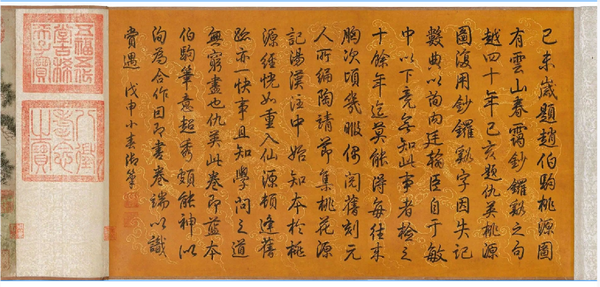 己未歲題趙伯駒桃源圖
有雲山春靄鈔鑼谿之句
越四十年己亥題仇英桃源
圖復用鈔鑼谿字因失記
數典以詢內廷翰臣自于敏
中以下竟無知此事者檢之
十餘年迄莫能得每往來
胸次頃幾暇偶閱舊刻元
人所編陶靖節集桃花源
記湯漢注中始知本於桃
源經恍如重入仙源頓逢舊
跡亦一快事且知學問之道
無窮盡也仇英此卷即藍本
伯駒筆意超秀頗能神似
洵為合作因即書卷端以識
賞遇 戊申小春御筆
五福五代
堂古稀
天子寶
八徵
耄念
之寶